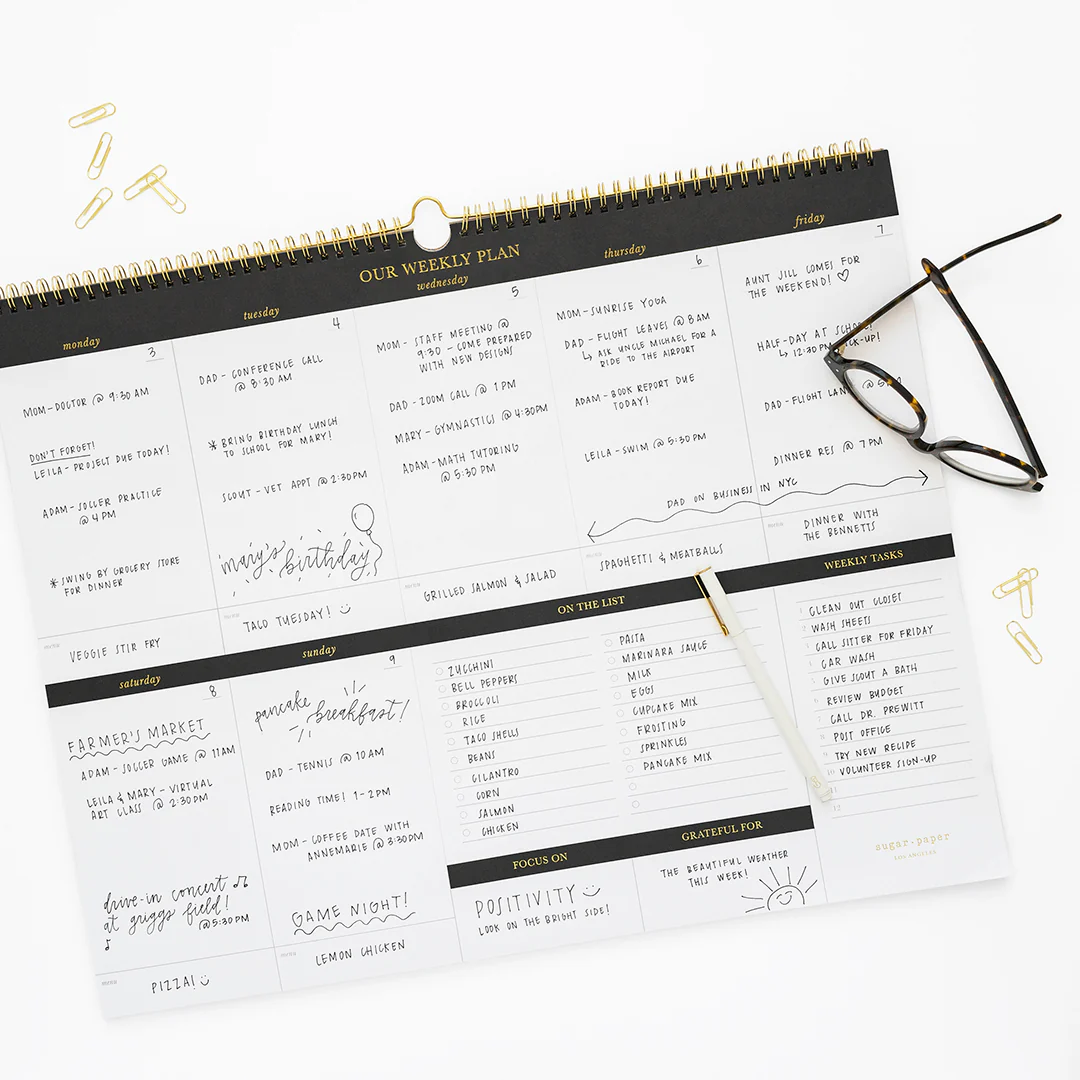 OUR WEEKLY PLAN
monday
3
MOM-DOCTOR @ 9:30 AM
DON'T FORGET!
LEILA - PROJECT DUE TODAY!
ADAM - SOCCER PRACTICE
@ 4 PM
* SWING BY GROCERY STORE
FOR DINNER
menu
VEGGIE STIR FRY
tuesday
4
DAD - CONFERENCE CALL
@ 8:30 AM
* BRING BIRTHDAY LUNCH
TO SCHOOL FOR MARY!
SCOUT - VET APPT @ 2:30PM
mary's birthday
menu
TACO TUESDAY!
wednesday
5
MOM- STAFF MEETING @
9:30 - COME PREPARED
WITH NEW DESIGNS
DAD - ZOOM CALL @ 1 PM
MARY - GYMNASTICS @ 4:30PM
ADAM-MATH TUTORING
@ 5:30 PM
menu
GRILLED SALMON & SALAD
thursday
6
MOM-SUNRISE YOGA
DAD - FLIGHT LEAVES @ 8 AM
ASK UNCLE MICHAEL FOR A
RIDE TO THE AIRPORT
ADAM-BOOK REPORT DUE
TODAY!
LEILA-SWIM @ 5:30 PM
DAD ON BUSINESS IN NYC
menu
SPAGHETTI & MEATBALLS
friday
7
AUNT JILL COMES FOR
THE WEEKEND! ♡
HALF-DAY AT
12:30
DAD-FLIGHT
DINNER RES @ 7 PM
menu
DINNER WITH
THE BENNETTS
saturday
8
FARMER'S MARKET
ADAM - SOCCER GAME @ 11AM
LEILA & MARY - VIRTUAL
ART CLASS @ 2:30PM
drive-in concert
at griggs field!
@5:30PM
menu
PIZZA!
sunday
9
pancake
breakfast!
DAD - TENNIS @ 10AM
READING TIME! 1-2PM
MOM-COFFEE DATE WITH
ANNEMARIE @ 3:30PM
GAME NIGHT!
menu
LEMON CHICKEN
ON THE LIST
ZUCCHINI
BELL PEPPERS
BROCCOLI
RICE
TACO SHELLS
BEANS
CILANTRO
CORN
SALMON
CHICKEN
PASTA
MARINARA SAUCE
MILK
EGGS
CUPCAKE MIX
FROSTING
SPRINKLES
PANCAKE MIX
FOCUS ON
POSITIVITY
LOOK ON THE BRIGHT SIDE!
GRATEFUL FOR
THE BEAUTIFUL WEATHER
THIS WEEK!
WEEKLY TASKS
1 CLEAN OUT CLOSET
2 WASH SHEETS
3 CALL SITTER FOR FRIDAY
4 CAR WASH
5 GIVE SCOUT A BATH
6 REVIEW BUDGET
7 CALL DR. PREWITT
8 POST OFFICE
9 TRY NEW RECIPE
10 VOLUNTEER SIGN-UP
11
12
sugar·paper
LOS ANGELES